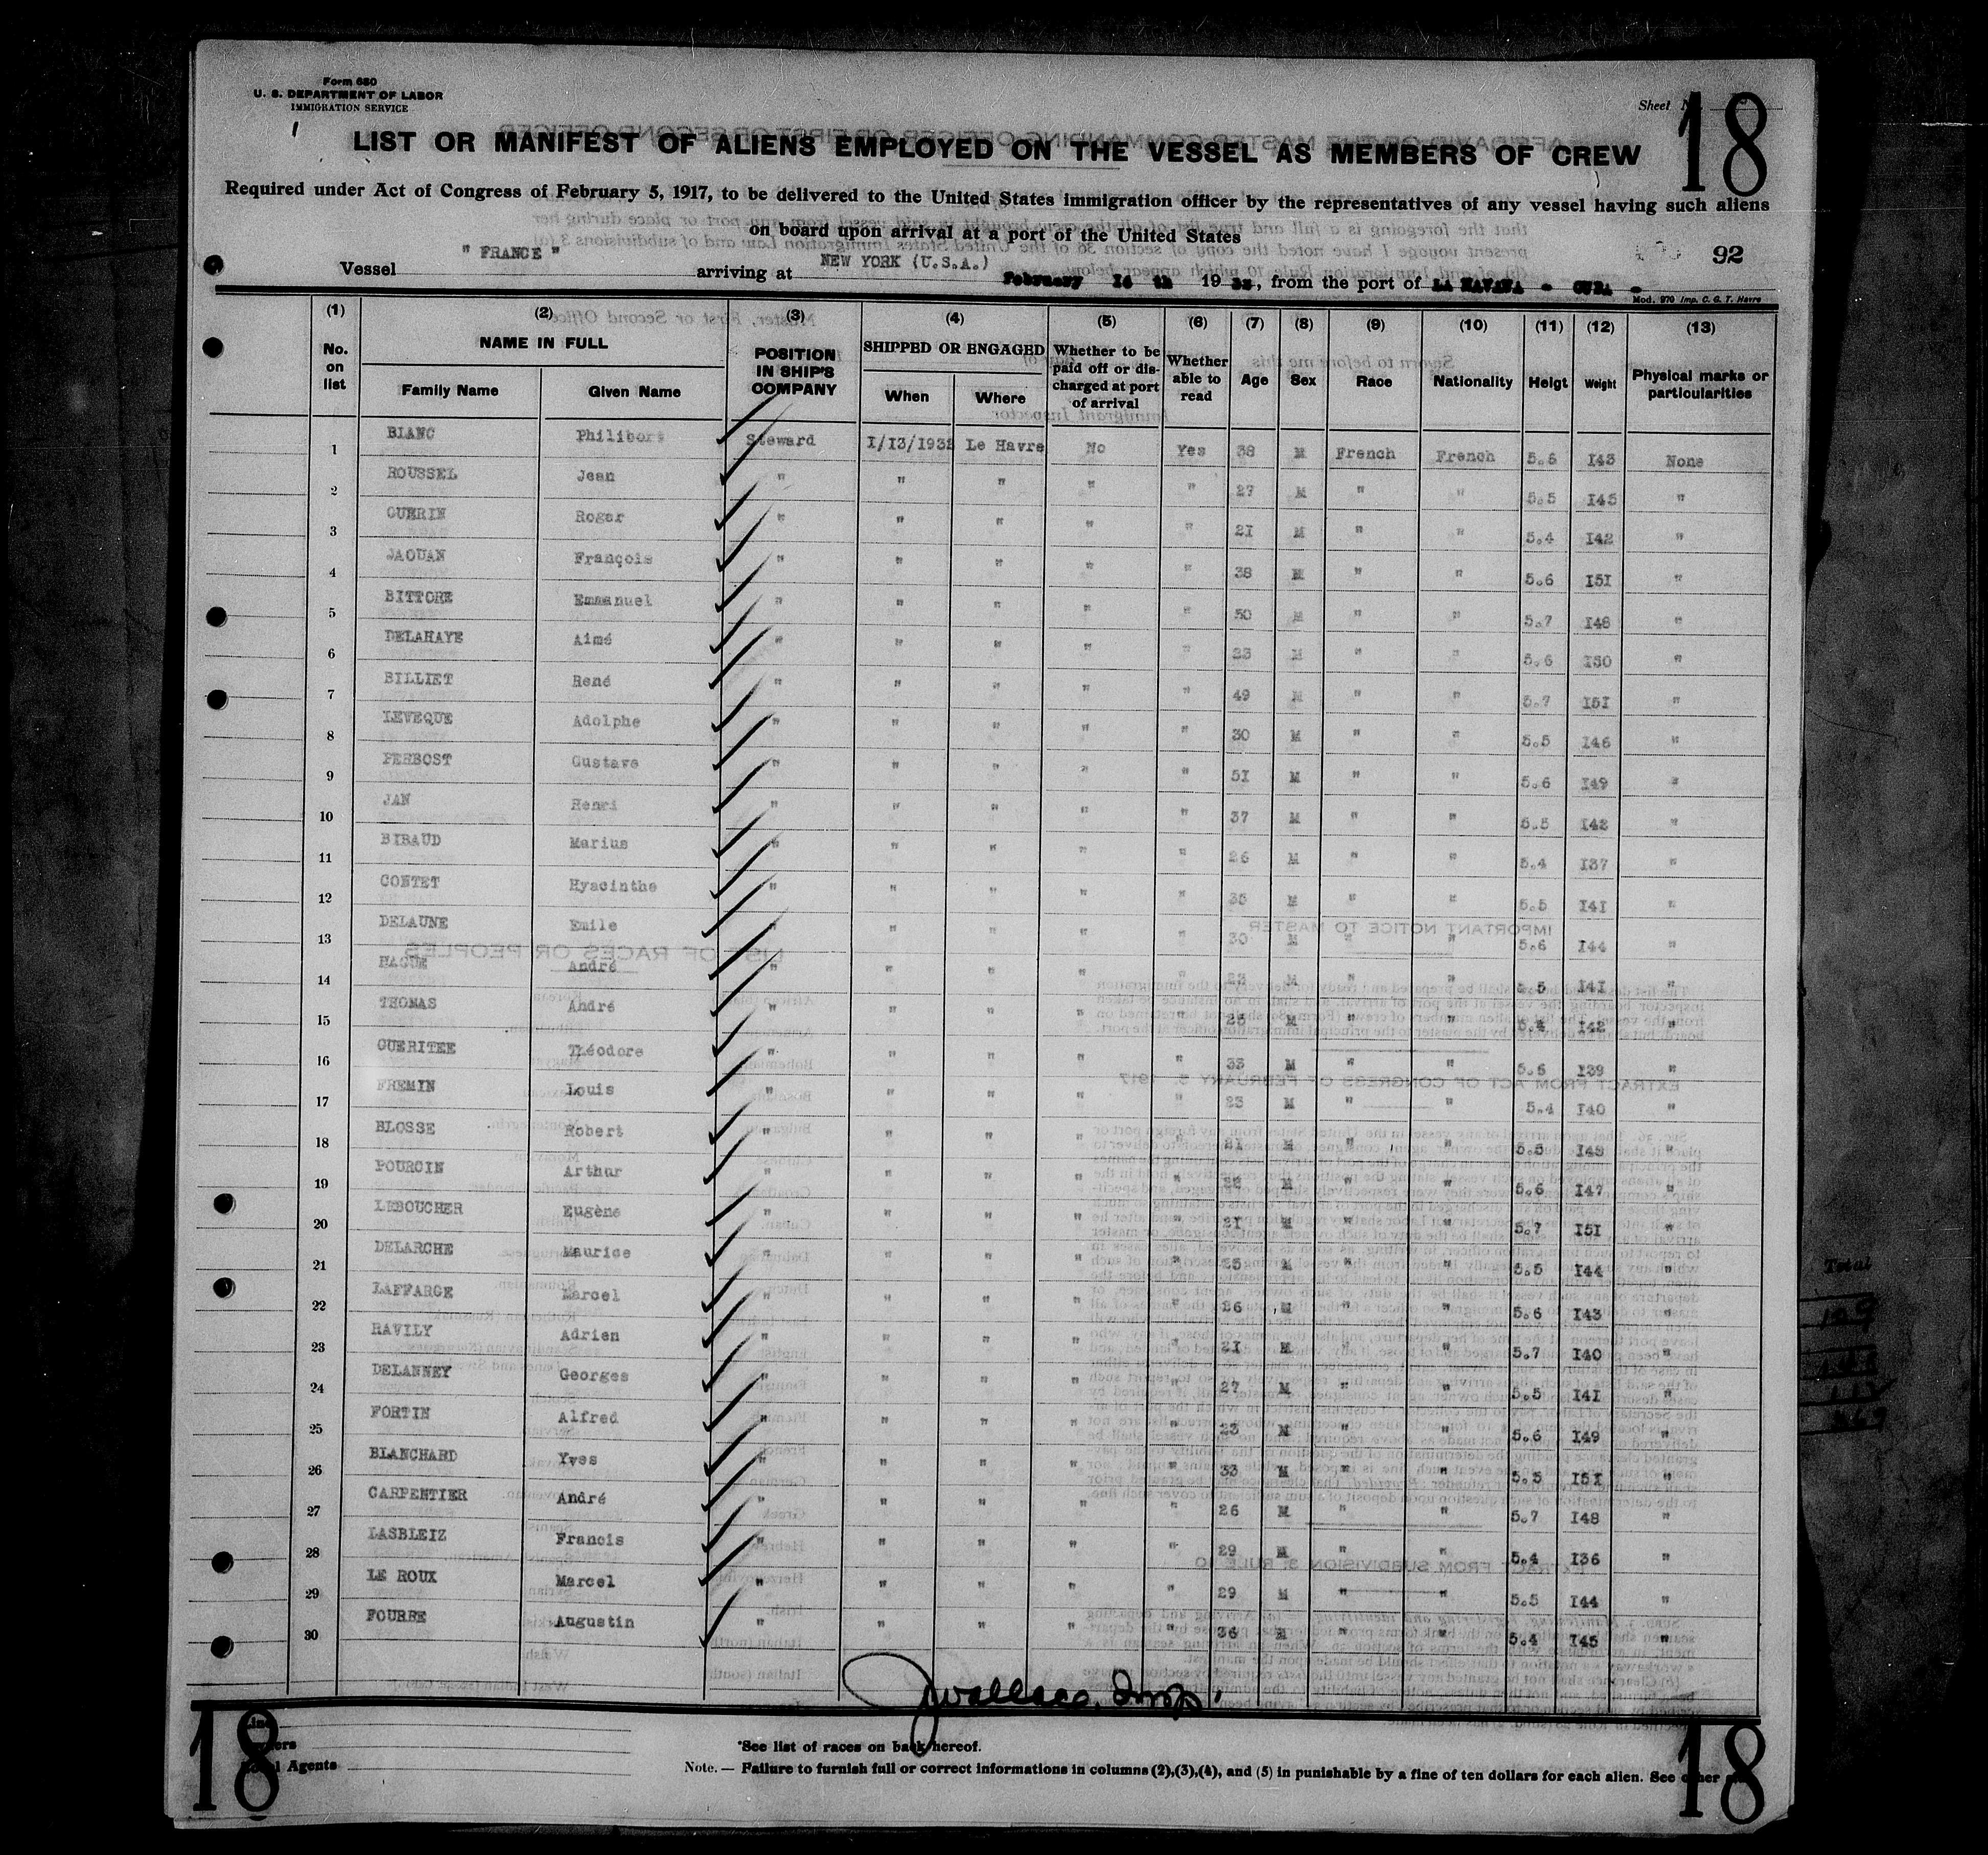 Form 680
U. S. DEPARTMENT OF LABOR
IMMIGRATION SERVICE
Sheet
18
LIST OR MANIFEST OF ALIENS EMPLOYED ON THE VESSEL AS MEMBERS OF CREW
Required under Act of Congress of February 5, 1917, to be delivered to the United States immigration officer by the representatives of any vessel having such aliens
on board upon arrival at a port of the United States
92
Vessel " FRANCE " arriving at NEW YORK (U.S.A.) February 16 th 19 , from the port of LA HAVANA - CUBA -
Mod. 970 Imp. C. G. T. Havre
(1) (2) (3) (4) (5) (6) (7) (8) (9) (10) (11) (12) (13)
No. on list NAME IN FULL Family Name Given Name POSITION IN SHIP'S COMPANY SHIPPED OR ENGAGED When Where Whether to be paid off or discharged at port of arrival Whether able to read Age Sex Race Nationality Heigt Weight Physical marks or particularities
1 BLANC Philibert Steward I/I3/1932 Le Havre No Yes 38 M French French 5.6 I43 None
2 ROUSSEL Jean " " " " " 27 M " " 5.5 I45 "
3 GUERIN Roger " " " " " 2I M " " 5.4 I42 "
4 JAOUAN François " " " " " 38 M " " 5.6 I5I "
5 BITTORE Emmanuel " " " " " 50 M " " 5.7 I48 "
6 DELAHAYE Aimé " " " " " 23 M " " 5.6 I50 "
7 BILLIET René " " " " " 49 M " " 5.7 I5I "
8 LEVEQUE Adolphe " " " " " 30 M " " 5.5 I46 "
9 FERBOST Gustave " " " " " 5I M " " 5.6 I49 "
10 JAN Henri " " " " " 37 M " " 5.5 I42 "
11 BIBAUD Marius " " " " " 26 M " " 5.4 I37 "
12 CONTET Hyacinthe " " " " " 35 M " " 5.5 I4I "
13 DELAUNE Emile " " " " " 30 M " " 5.6 I44 "
14 HAGUE André " " " " " 23 M " " 5.5 I4I "
15 THOMAS André " " " " " 25 M " " 5.4 I42 "
16 GUERITEE Théodore " " " " " 33 M " " 5.6 I39 "
17 FREMIN Louis " " " " " 23 M " " 5.4 I40 "
18 BLOSSE Robert " " " " " 2I M " " 5.5 I43 "
19 POURCIN Arthur " " " " " 22 M " " 5.6 I47 "
20 LEBOUCHER Eugène " " " " " 2I M " " 5.7 I5I "
21 DELARCHE Maurice " " " " " 25 M " " 5.5 I44 "
22 LAFFARGE Marcel " " " " " 26 M " " 5.6 I43 "
23 RAVILY Adrien " " " " " 2I M " " 5.7 I40 "
24 DELANNEY Georges " " " " " 27 M " " 5.5 I4I "
25 FORTIN Alfred " " " " " 23 M " " 5.6 I49 "
26 BLANCHARD Yves " " " " " 33 M " " 5.5 I5I "
27 CARPENTIER André " " " " " 26 M " " 5.7 I48 "
28 LASBLEIZ Francis " " " " " 29 M " " 5.4 I36 "
29 LE ROUX Marcel " " " " " 29 M " " 5.5 I44 "
30 FOURRE Augustin " " " " " 36 M " " 5.4 I45 "
J Wallace, Insp.
Total
129
18
Agents
*See list of races on back hereof.
Note. — Failure to furnish full or correct informations in columns (2),(3),(4), and (5) in punishable by a fine of ten dollars for each alien. See other
18